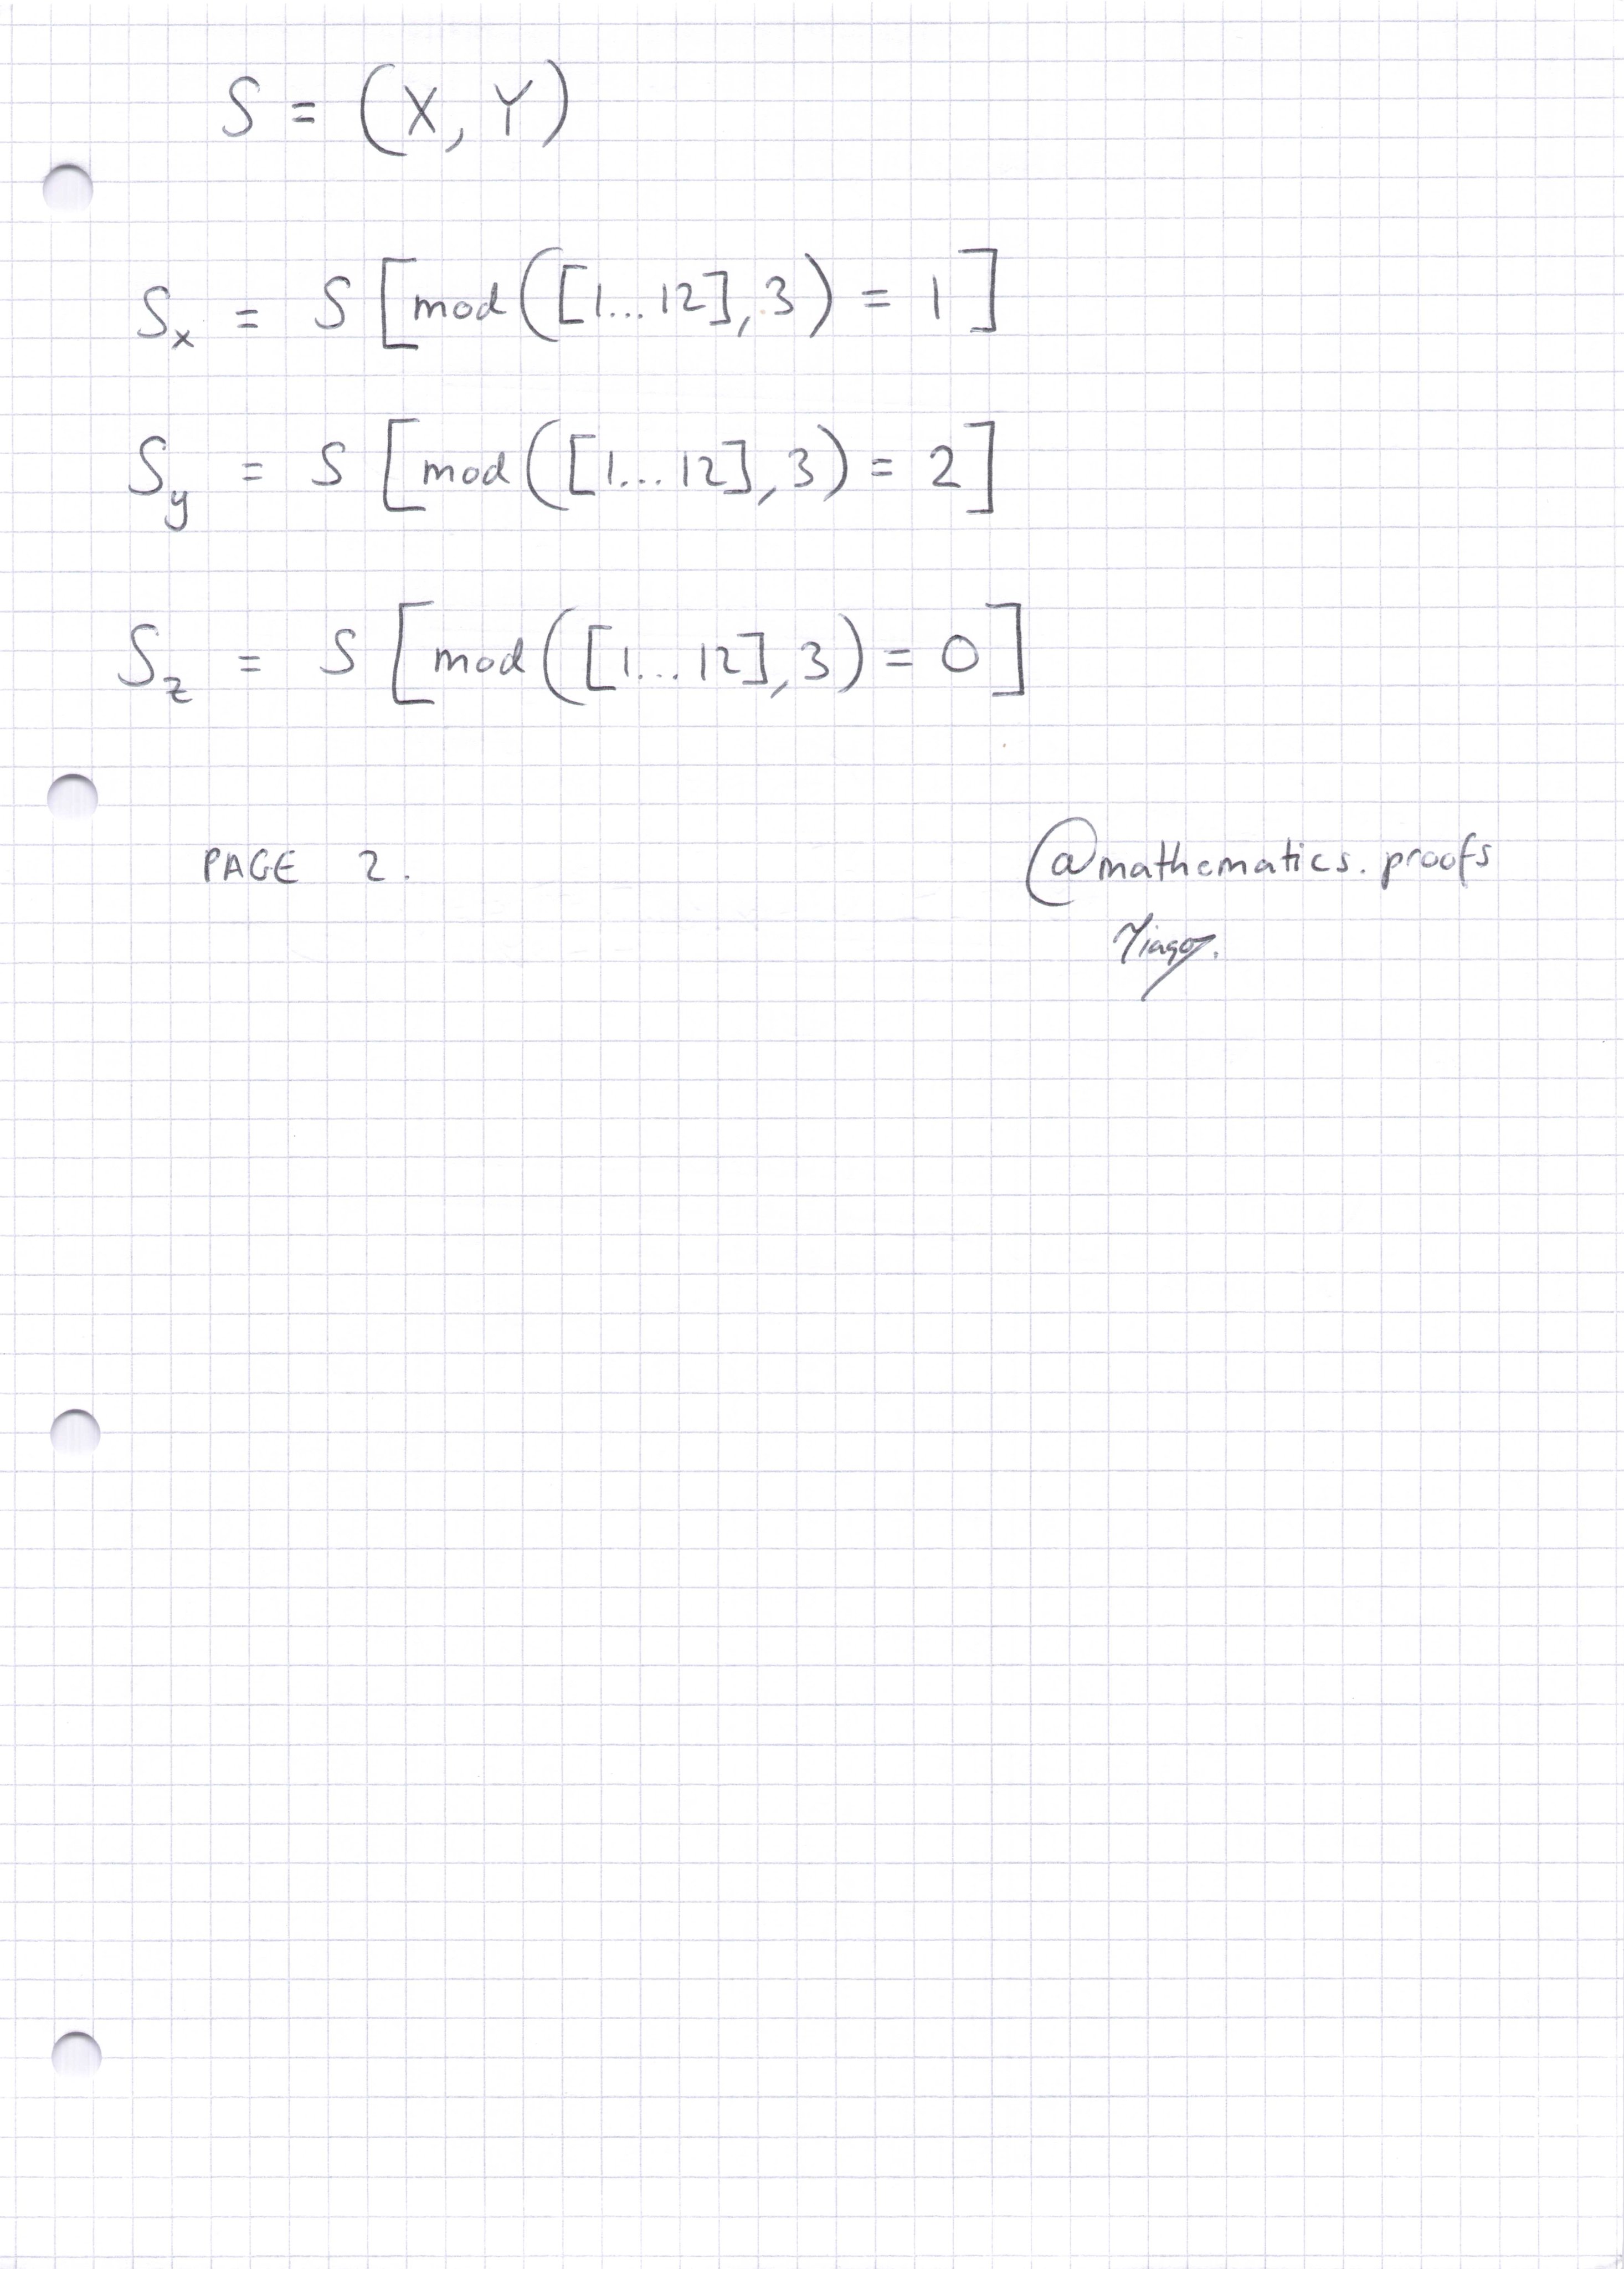 S = (X, Y)
S_x = S [mod([1...12], 3) = 1]
S_y = S [mod([1...12], 3) = 2]
S_z = S [mod([1...12], 3) = 0]
PAGE 2.
@mathematics.proofs
Tiago.